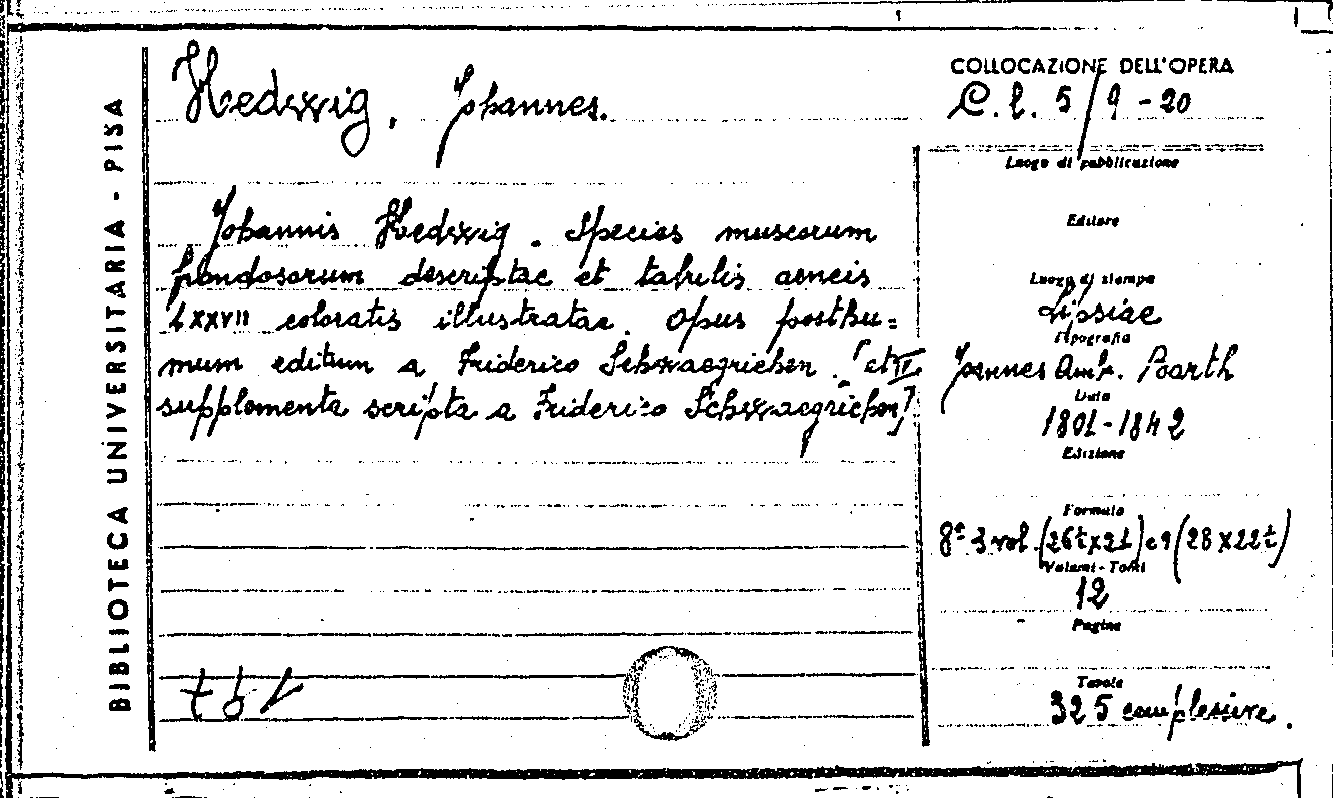 BIBLIOTECA UNIVERSITARIA - PISA
Hedwig, Johannes.
Johannis Hedwig. Species muscorum
frondosorum descriptae et tabulis aeneis
LXXVII coloratis illustratae. Opus posthu=
mum editum a Friderico Schwaegrichen. [et
supplementa scripta a Friderico Schwaegrichen]
COLLOCAZIONE DELL'OPERA
C. l. 5/9-20
Luogo di pubblicazione
Editore
Luogo di stampa
Lipsiae
Tipografia
Joannes Amb. Barth
Data
1801-1842
Edizione
Formato
8º 3 vol. (26½x21) e 9 (28x22½)
Volumi - Tomi
12
Pagine
Tavole
325 complessive.